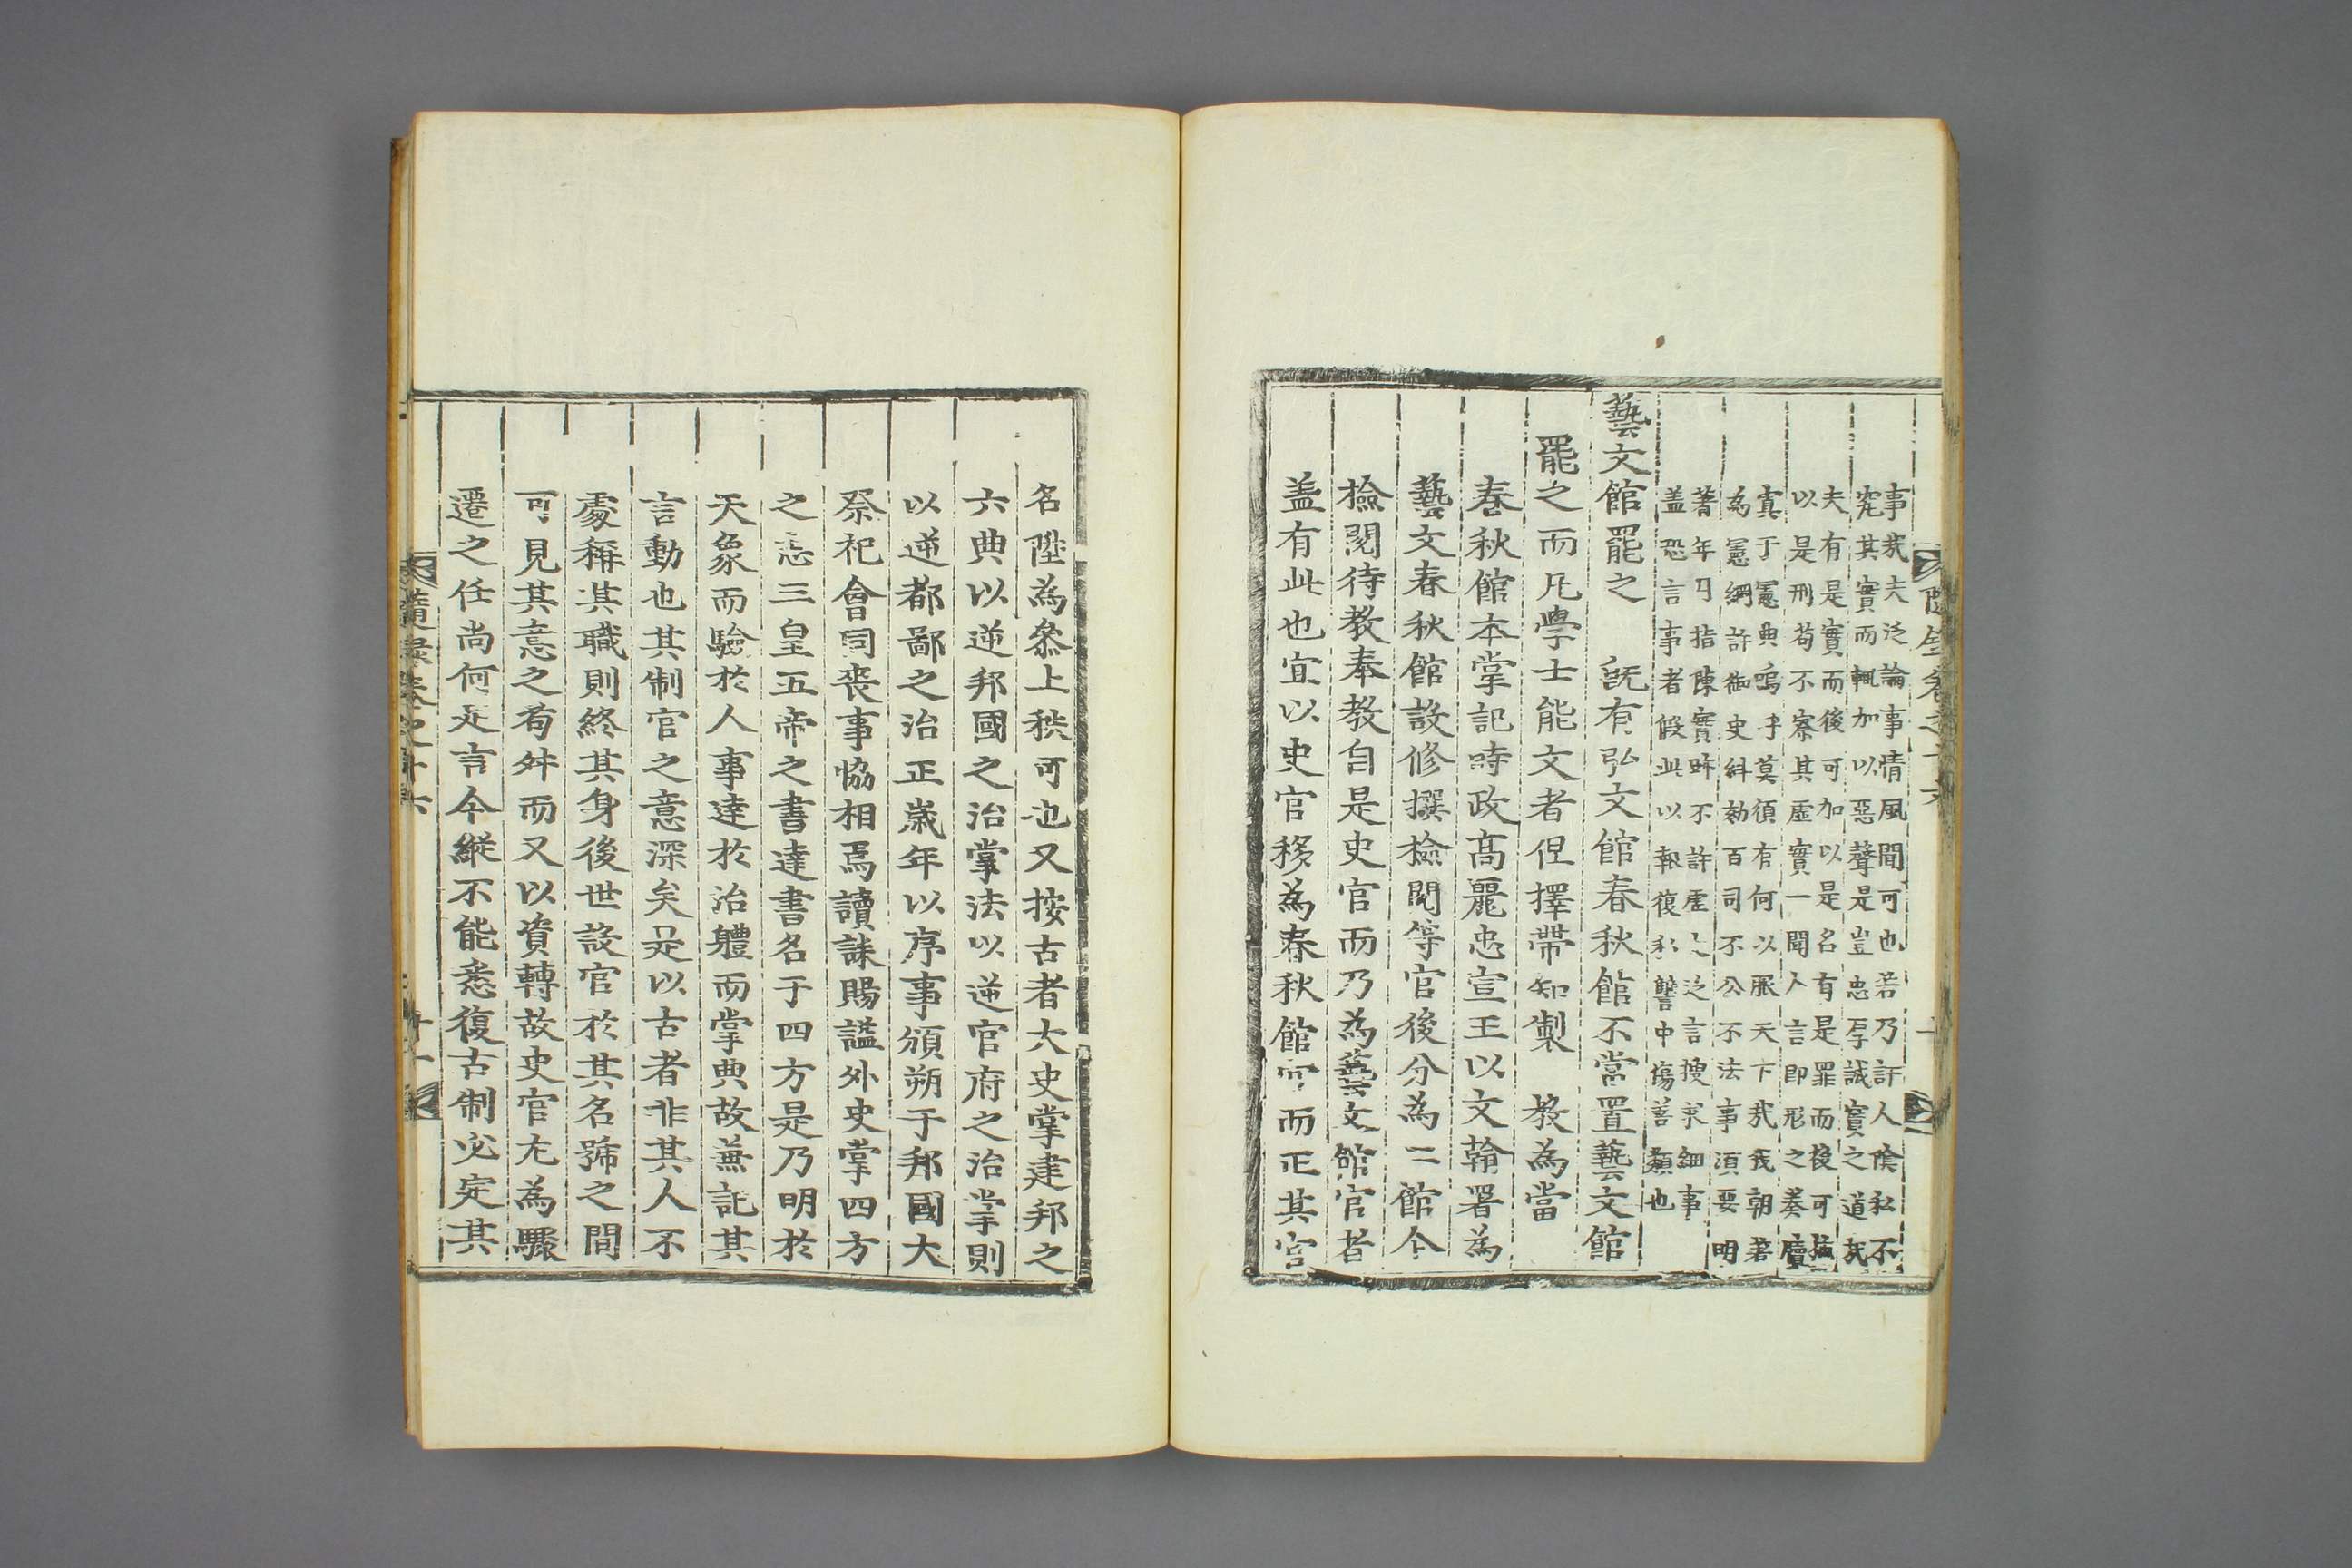 事哉夫泛論事情風聞可也若乃訐人陰私不
究其實而輒加以惡聲是豈忠厚誠實之道哉
夫有是實而後可加以是名有是罪而後可施
以是刑苟不察其虛實一聞人言即形之奏牘
寘于憲典嗚呼莫須有何以服天下哉我朝著
為憲綱許御史糾劾百司不公不法事須要明
著年月指陳實跡不許虛文泛言搜求細事
盖恐言事者假此以報復私讐中傷善類也
藝文館罷之 旣有弘文館春秋館不常置藝文館
罷之而凡學士能文者但擇帶知製 敎為當
春秋館本掌記時政高麗忠宣王以文翰署為
藝文春秋館設修撰檢閱等官後分為二館今
檢閱待教奉教自是史官而乃為藝文館官者
盖有此也宜以史官移為春秋館官而正其官
名陞為叅上秩可也又按古者大史掌建邦之
六典以逆邦國之治掌法以逆官府之治掌則
以逆都鄙之治正歲年以序事頒朔于邦國大
祭祀會同喪事恊相焉讀誄賜謚外史掌四方
之志三皇五帝之書達書名于四方是乃明於
天象而驗於人事達於治軆而掌典故兼記其
言動也其制官之意深矣是以古者非其人不
處稱其職則終其身後世設官於其名號之間
可見其意之有舛而又以資轉故史官尤為驟
遷之任尚何足言今縱不能悉復古制必定其
十一